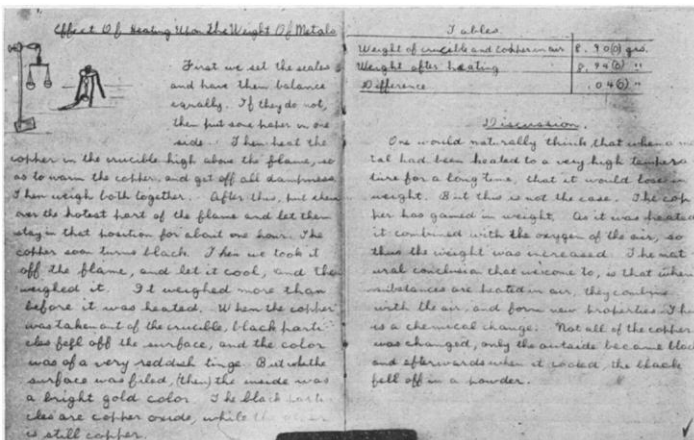 Effect Of Heating Upon The Weight Of Metals
First we set the scales
and have them balance
equally. If they do not,
then put some paper in one
side. Then heat the
copper in the crucible high above the flame, so
as to warm the copper, and get off all dampness
Then weigh both together. After this, put them
over the hotest part of the flame and let them
stay in that position for about one hour. The
copper soon turns black. Then we took it
off the flame, and let it cool, and then
weighed it. It weighed more than
before it was heated. When the copper
was taken out of the crucible, black parti
cles fell off the surface, and the color
was of a very reddish tinge. But when the
surface was filed, (then) the inside was
a bright gold color. The black parti
cles are copper oxide, while the
is still copper.
Tables
Weight of crucible and copper in air 8.90(0) grs.
Weight after heating 8.94(0) "
Difference .04(0) "
Discussion.
One would naturally think, that when a me
tal had been heated to a very high tempera
ture for a long time, that it would lose in
weight. But this is not the case. The cop
per has gained in weight. As it was heated
it combined with the oxygen of the air, so
thus the weight was increased. The nat
ural conclusion that we come to, is that when
substances are heated in air, they combine
with the air, and form new properties. This
is a chemical change. Not all of the copper
was changed, only the outside became black
and afterwards when it cooled, the black
fell off in a powder.